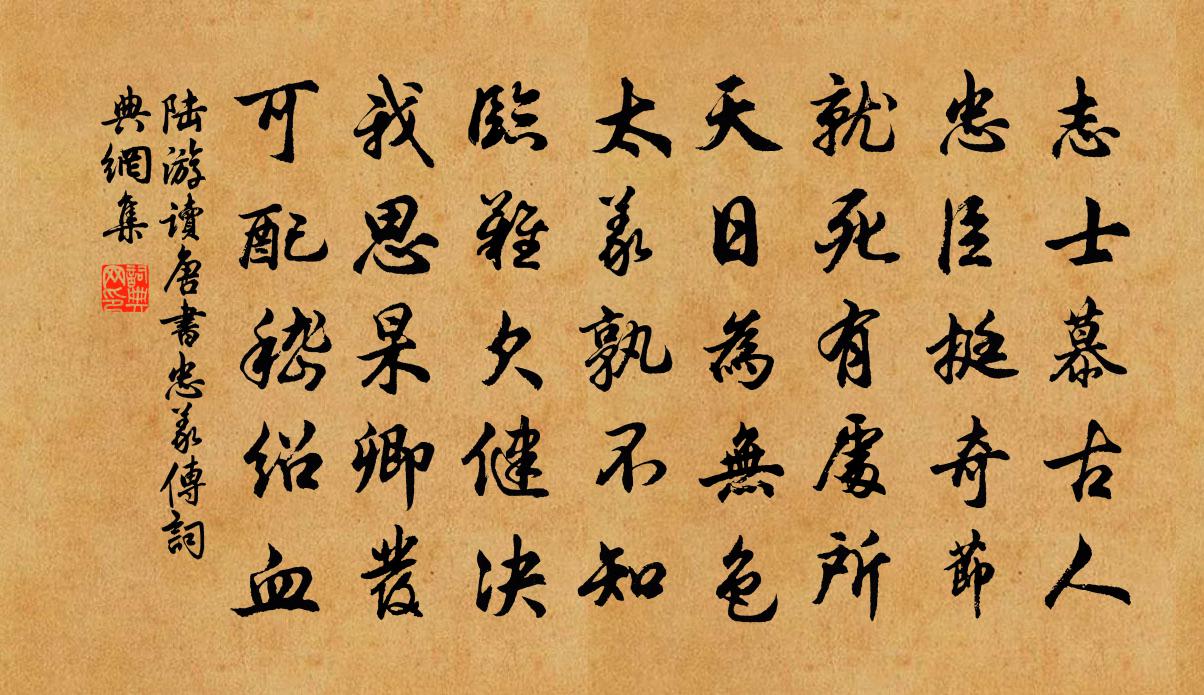 志士慕古人
忠臣挺奇節
就死有處所
天日為無色
太義孰不知
臨難欠健決
我思杲卿發
可配嵇紹血
陆游讀唐書忠義傳詞
典網集
詞典
网印